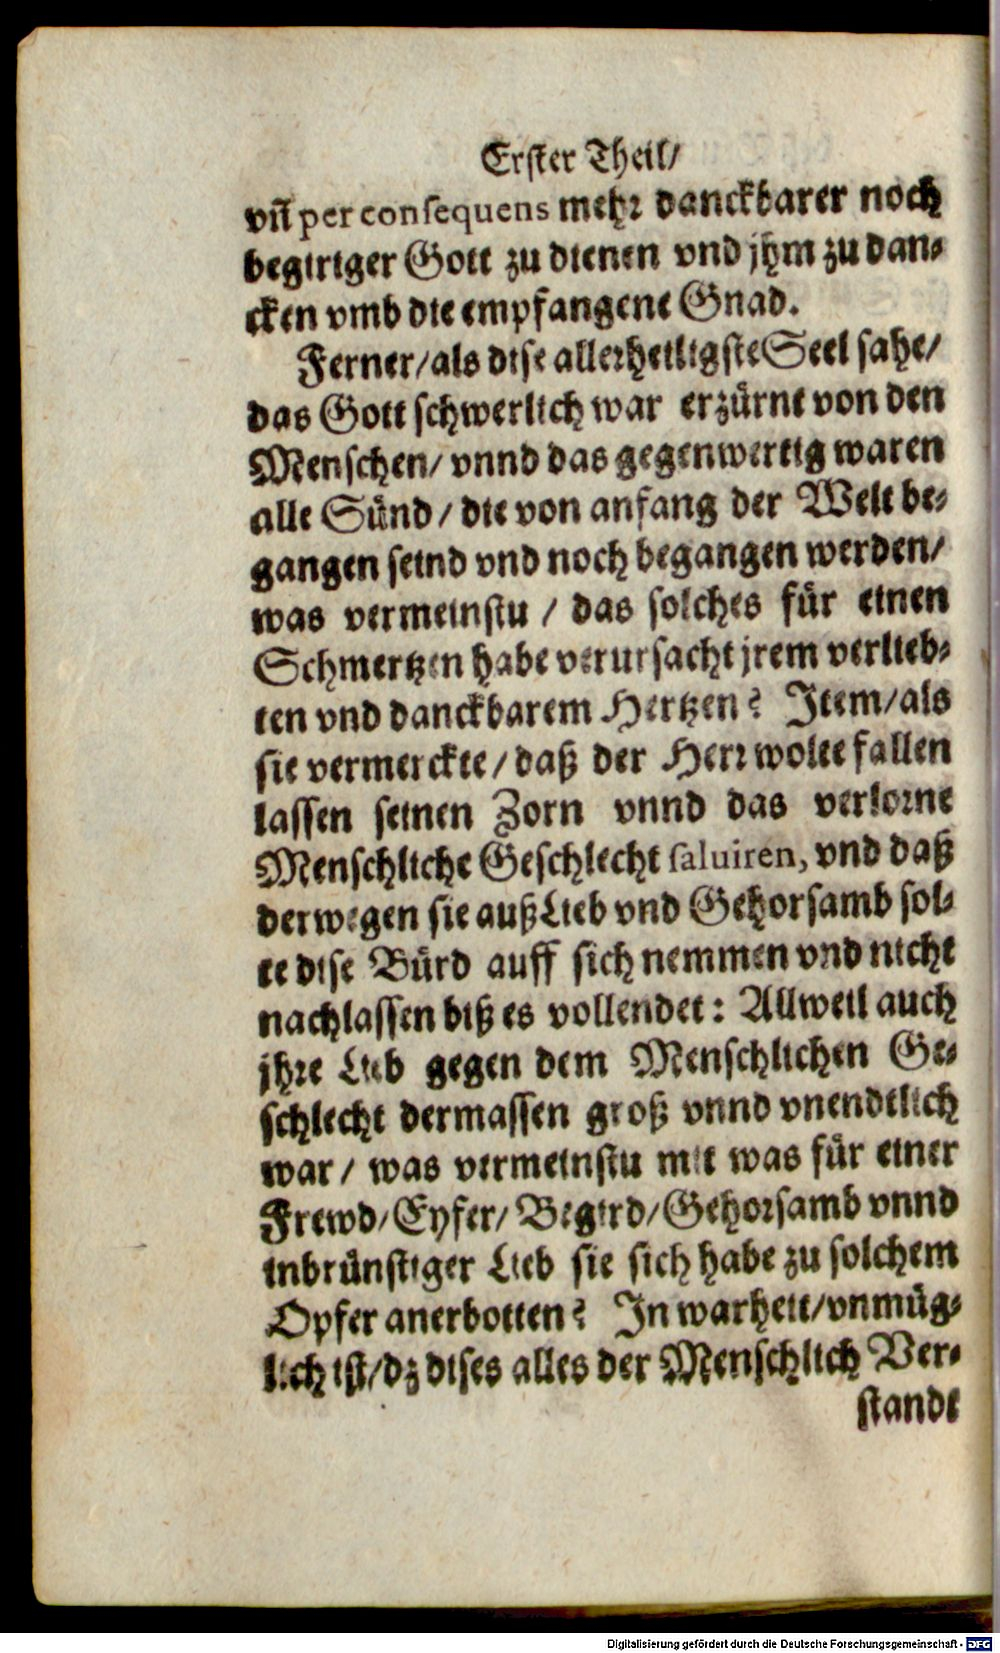 Erster Theil/
vñ per consequens mehr danckbarer noch
begiriger Gott zu dienen vnd jhm zu dan-
cken vmb die empfangene Gnad.
Ferner/als dise allerheiligste Seel sahe/
das Gott schwerlich war erzürnt von den
Menschen/ vnnd das gegenwertig waren
alle Sünd/ die von anfang der Welt be-
gangen seind vnd noch begangen werden/
was vermeinstu / das solches für einen
Schmertzen habe verursacht jrem verlieb-
ten vnd danckbarem Hertzen? Item/als
sie vermerckte/ daß der Herr wolte fallen
lassen seinen Zorn vnnd das verlorne
Menschliche Geschlecht saluiren, vnd daß
derwegen sie auß Lieb vnd Gehorsamb sol-
te dise Bürd auff sich nemmen vnd nicht
nachlassen biß es vollendet: Allweil auch
jhre Lieb gegen dem Menschlichen Ge-
schlecht dermassen groß vnnd vnendtlich
war/ was vermeinstu mit was für einer
Frewd/Eyfer/ Begird/Gehorsamb vnnd
inbrünstiger Lieb sie sich habe zu solchem
Opfer anerbotten? In warheit/vnmüg-
lich ist/dz dises alles der Menschlich Ver-
standt
Digitalisierung gefördert durch die Deutsche Forschungsgemeinschaft - DFG